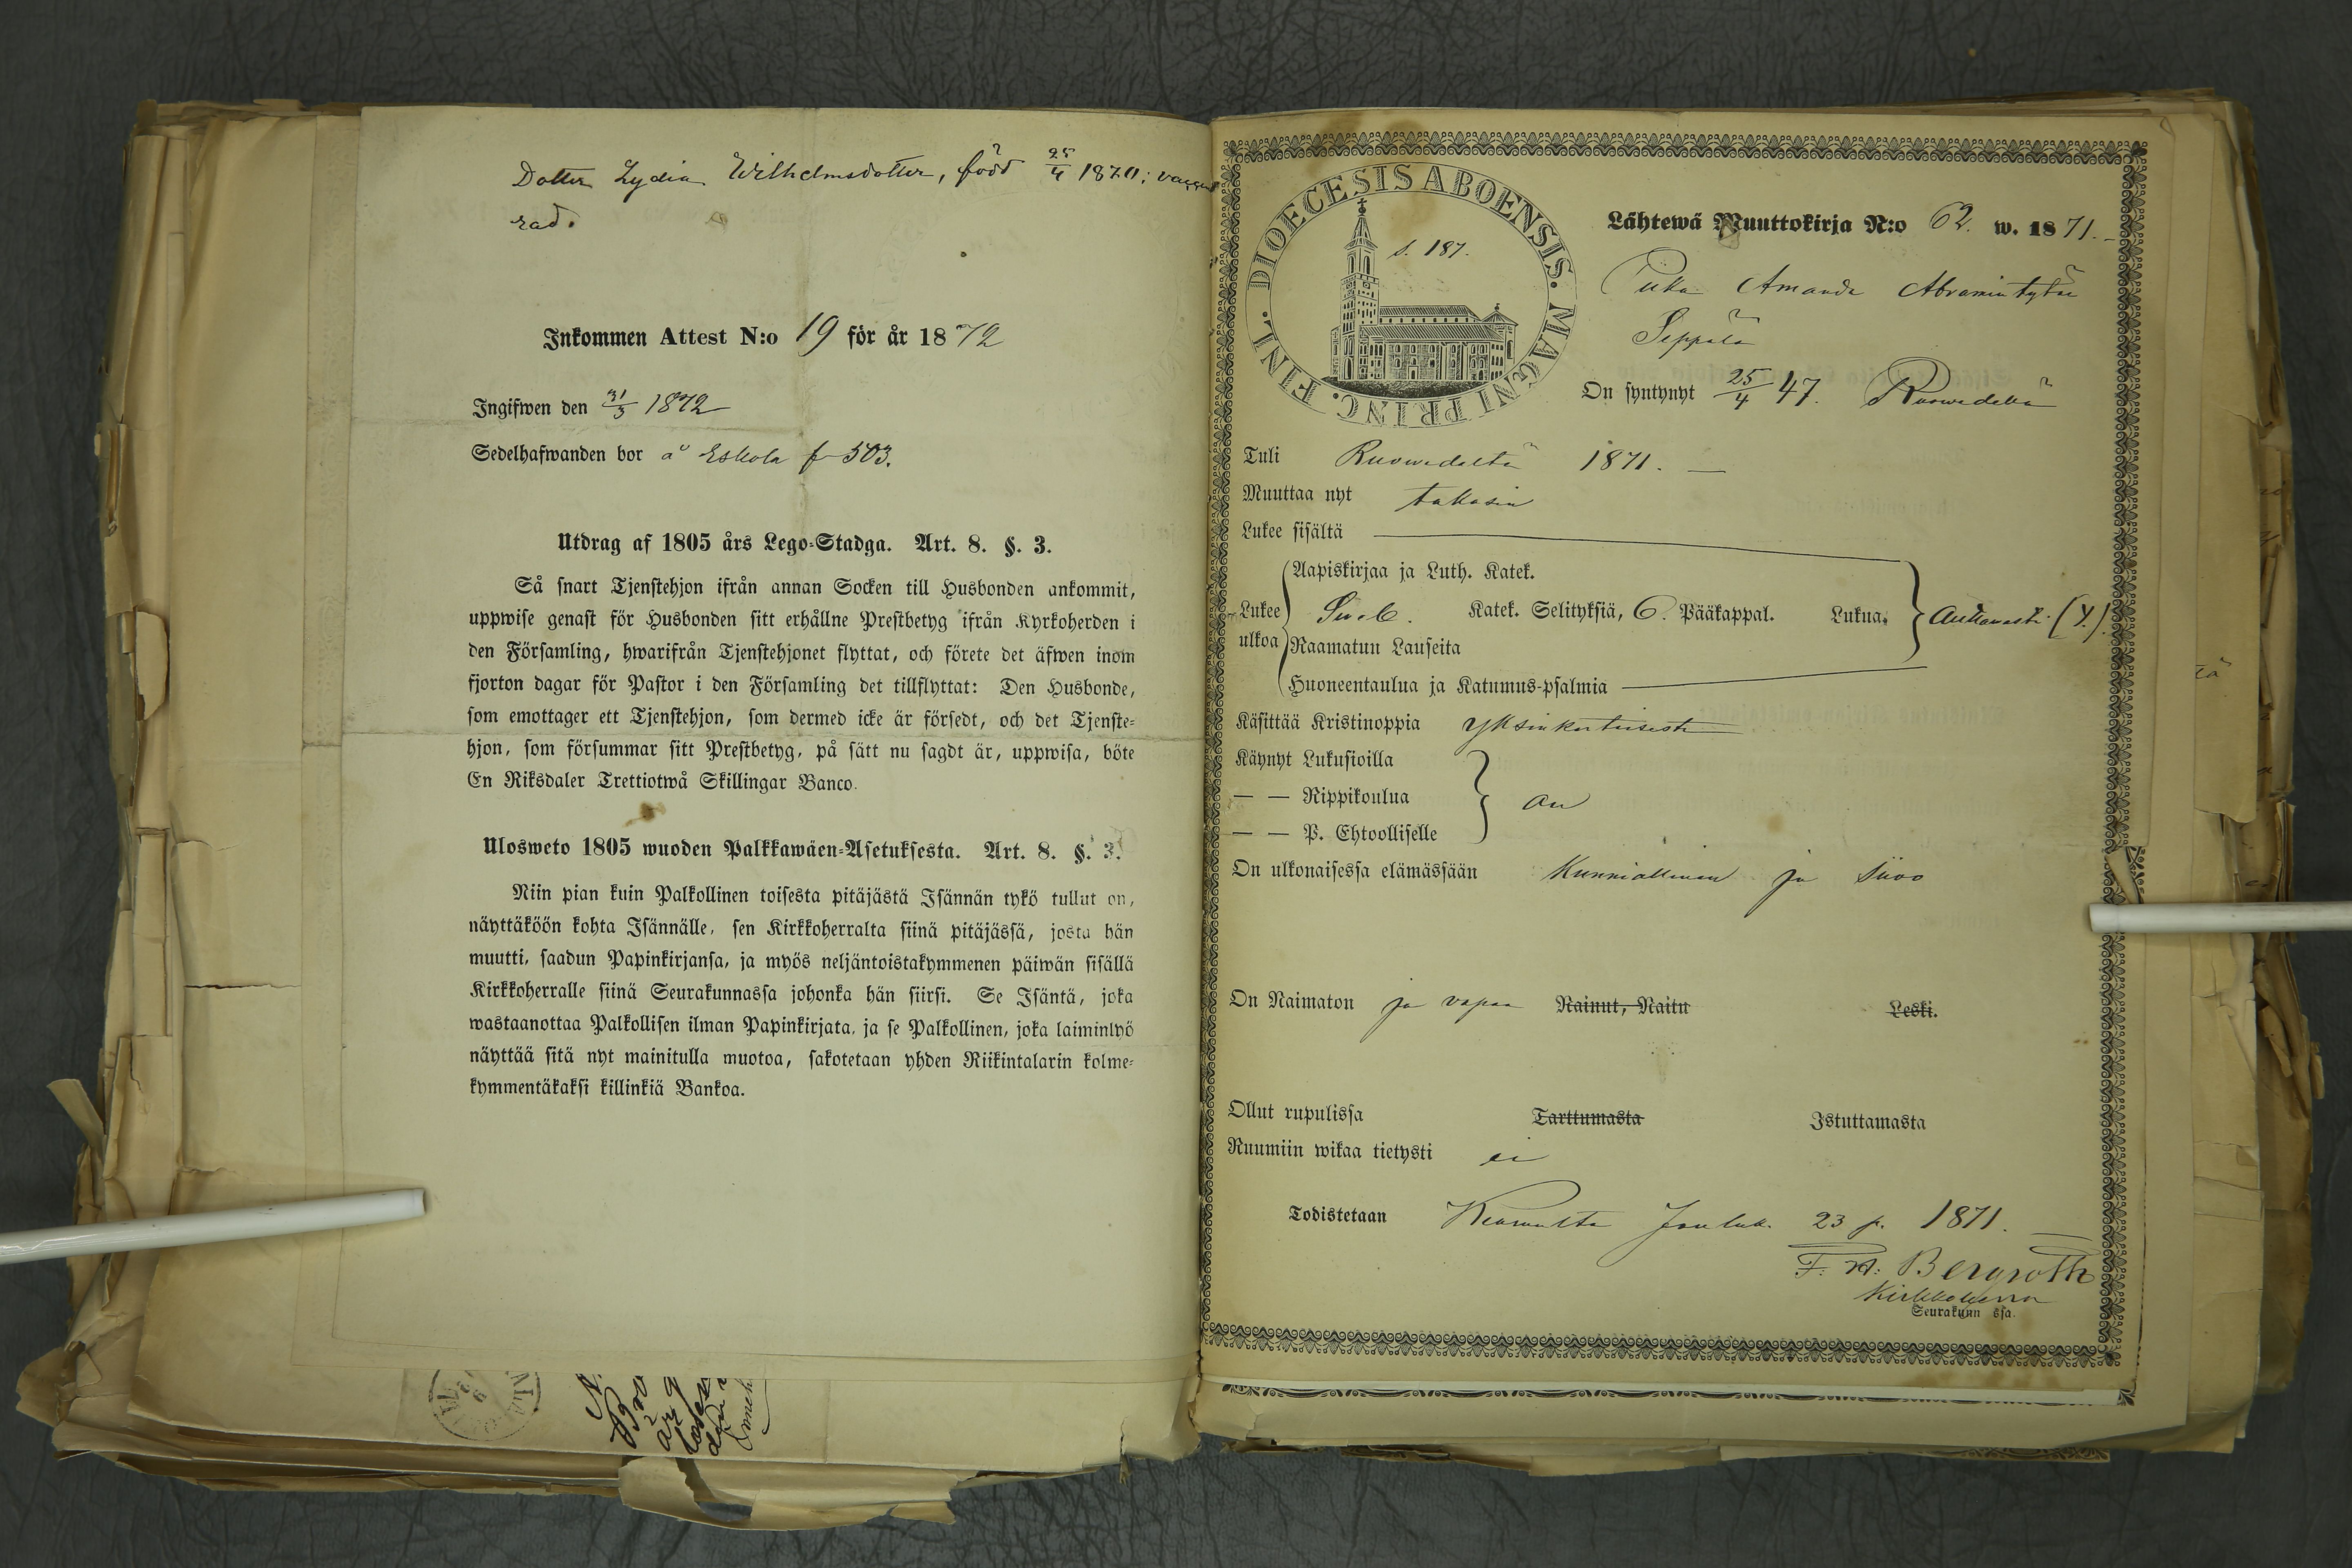 Dotter Lydia Wilhelmsdotter, född 25/4 1870; vaccine
rad.
Inkommen Attest N:o 19 för år 1872
Ingifwen den 31/3 1872
Sedelhafwanden bor å Eskola f 503.
Utdrag af 1805 års Lego-Stadga. Art. 8. §. 3.
Så snart Tjenstehjon ifrån annan Socken till Husbonden ankommit,
uppwise genast för Husbonden sitt erhållne Prestbetyg ifrån Kyrkoherden i
den Församling, hwarifrån Tjenstehjonet flyttat, och förete det äfwen inom
fjorton dagar för Pastor i den Församling det tillflyttat: Den Husbonde,
som emottager ett Tjenstehjon, som dermed icke är försedt, och det Tjenste-
hjon, som försummar sitt Prestbetyg, på sätt nu sagdt är, uppwisa, böte
En Riksdaler Trettiotwå Skillingar Banco.
Ulosweto 1805 wuoden Palkkawäen-Asetuksesta. Art. 8. §. 3.
Niin pian kuin Palkollinen toisesta pitäjästä Isännän tykö tullut on,
näyttäköön kohta Isännälle, sen Kirkkoherralta siinä pitäjässä, josta hän
muutti, saadun Papinkirjansa, ja myös neljäntoistakymmenen päiwän sisällä
Kirkkoherralle siinä Seurakunnassa johonka hän siirsi. Se Isäntä, joka
wastaanottaa Palkollisen ilman Papinkirjata, ja se Palkollinen, joka laiminlyö
näyttää sitä nyt mainitulla muotoa, sakotetaan yhden Riikintalarin kolme-
kymmentäkaksi killinkiä Bankoa.
DIOECESIS ABOENSIS. MAGNI PRINC. FINL.
s. 187.
Lähtewä Muuttokirja N:o 62. w. 1871.
Piika Amanda Abramintytär
Seppälä
On syntynyt 25/4 47. Ruowedellä
Tuli Ruowedeltä 1871.
Muuttaa nyt takasin
Lukee sisältä
Aapiskirjaa ja Luth. Katek.
Lukee ulkoa Katek. Selityksiä, 6. Pääkappal. Lukua.
Raamatun Lauseita
Huoneentaulua ja Katumus-psalmia
Käsittää Kristinoppia yksinkertaisesti
Käynyt Lukusioilla
— — Rippikoulua on
— — P. Ehtoolliselle
On ulkonaisessa elämässään Kunniallinen ja siivo
On Naimaton ja vapaa Nainut, Naitu Leski.
Ollut rupulissa Tarttumasta Istuttamasta
Ruumiin wikaa tietysti ei
Todistetaan Keuruulta Jouluk. 23 p. 1871.
F. W. Bergroth
Kirkkoherra
Seurakunn ssa.